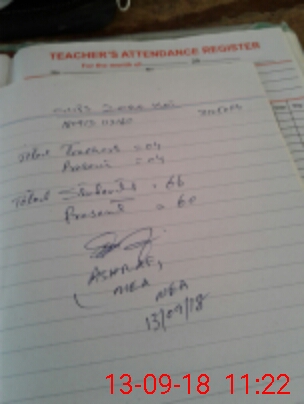 TEACHER'S ATTENDANCE REGISTER
For the month of
Total Teachers = 04
Present = 04
Total Students = 66
Present = 60
ASHRAF,
MEA
MEA
13/09/18
13-09-18 11:22